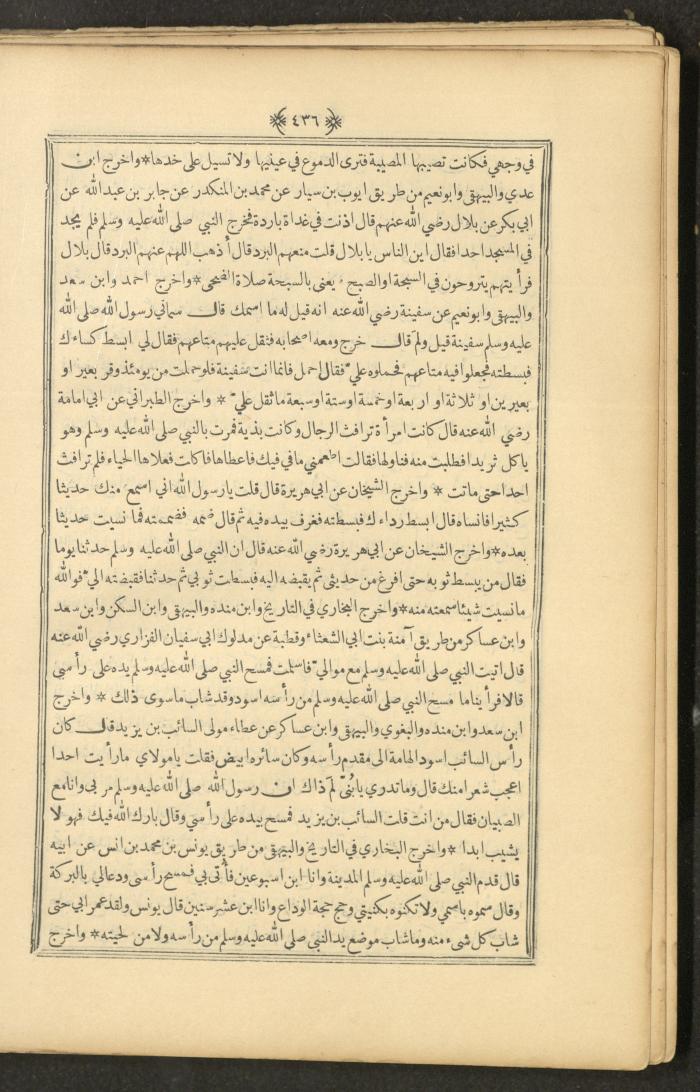 ٤٣٦
في وجهي فكانت تصيبها المصيبة فترى الدموع في عينيها ولا تسيل على خدها * واخرج ابن
عدي والبيهقي وابو نعيم من طريق ايوب بن سيار عن محمد بن المنكدر عن جابر بن عبد الله عن
ابي بكر عن بلال رضي الله عنهم قال اذنت في غداة باردة فخرج النبي صلى الله عليه وسلم فلم يجد
في المسجد احدا فقال اين الناس يا بلال قلت منعهم البرد قال أذهب اللهم عنهم البرد قال بلال
فرأيتهم يتروحون في السبحة او الصبح ، يعني بالسبحة صلاة الضحى * واخرج احمد وابن سعد
والبيهقي وابو نعيم عن سفينة رضي الله عنه انه قيل له ما اسمك قال سماني رسول الله صلى الله
عليه وسلم سفينة قيل ولِمَ قال خرج ومعه اصحابه فثقل عليهم متاعهم فقال لي ابسط كساءك
فبسطته فجعلوا فيه متاعهم فحملوه عليّ فقال احمل فانما انت سفينة فلو حملت من يومئذ وقر بعير او
بعيرين او ثلاثة او اربعة او خمسة او ستة او سبعة ما ثقل عليّ * واخرج الطبراني عن ابي امامة
رضي الله عنه قال كانت امرأة ترافث الرجال وكانت بذية فمرت بالنبي صلى الله عليه وسلم وهو
ياكل ثريدا فطلبت منه فناولها فقالت اطعمني ما في فيك فاعطاها فاكلت فعلاها الحياء فلم ترافث
احدا حتى ماتت * واخرج الشيخان عن ابي هريرة قال قلت يا رسول الله اني اسمع منك حديثا
كثيرا فانساه قال ابسط رداءك فبسطته فغرف بيده فيه ثم قال ضمه فضممته فما نسيت حديثا
بعده * واخرج الشيخان عن ابي هريرة رضي الله عنه قال ان النبي صلى الله عليه وسلم حدثنا يوما
فقال من يبسط ثوبه حتى افرغ من حديثي ثم يقبضه اليه فبسطت ثوبي ثم حدثنا فقبضته اليّ فوالله
ما نسيت شيئا سمعته منه * واخرج البخاري في التاريخ وابن منده والبيهقي وابن السكن وابن سعد
وابن عساكر من طريق آمنة بنت ابي الشعثاء وقطبة عن مدلوك ابي سفيان الفزاري رضي الله عنه
قال اتيت النبي صلى الله عليه وسلم مع مواليّ فاسلمت فمسح النبي صلى الله عليه وسلم يده على رأسي
قالا فرأينا ما مسح النبي صلى الله عليه وسلم من رأسه اسود وقد شاب ما سوى ذلك * واخرج
ابن سعد وابن منده والبغوي والبيهقي وابن عساكر عن عطاء مولى السائب بن يزيد قال كان
رأس السائب اسود الهامة الى مقدم رأسه وكان سائره ابيض فقلت يا مولاي ما رأيت احدا
اعجب شعرا منك قال وما تدري يا بُنيّ لِمَ ذاك ان رسول الله صلى الله عليه وسلم مر بي وانا مع
الصبيان فقال من انت قلت السائب بن يزيد فمسح بيده على رأسي وقال بارك الله فيك فهو لا
يشيب ابدا * واخرج البخاري في التاريخ والبيهقي من طريق يونس بن محمد بن انس عن ابيه
قال قدم النبي صلى الله عليه وسلم المدينة وانا ابن اسبوعين فأتى بي فمسح رأسي ودعا لي بالبركة
وقال سموه باسمي ولا تكنوه بكنيتي وحج حجة الوداع وانا ابن عشر سنين قال يونس ولقد عمر ابي حتى
شاب كل شيء منه وما شاب موضع يد النبي صلى الله عليه وسلم من رأسه ولا من لحيته * واخرج